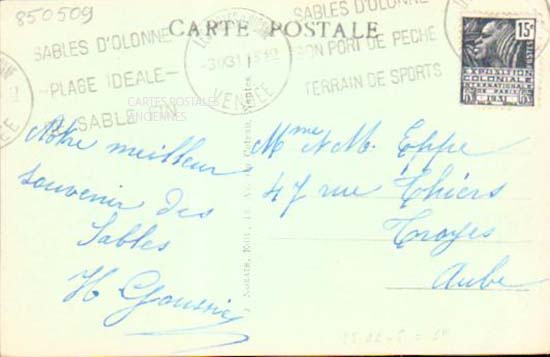 850509
CARTE POSTALE
SABLES D'OLONNE
-PLAGE IDEALE-
SABLE FIN
VENDÉE
SABLES D'OLONNE
SON PORT DE PECHE
TERRAIN DE SPORTS
15c
POSTES
EXPOSITION
COLONIALE
INTERNATIONALE
DE PARIS
1931
CARTES POSTALES
ANCIENNES
Notre meilleur
souvenir des
Sables
Mme N M. Eppe
47 rue Thiers
Troyes
Aube
Nantes